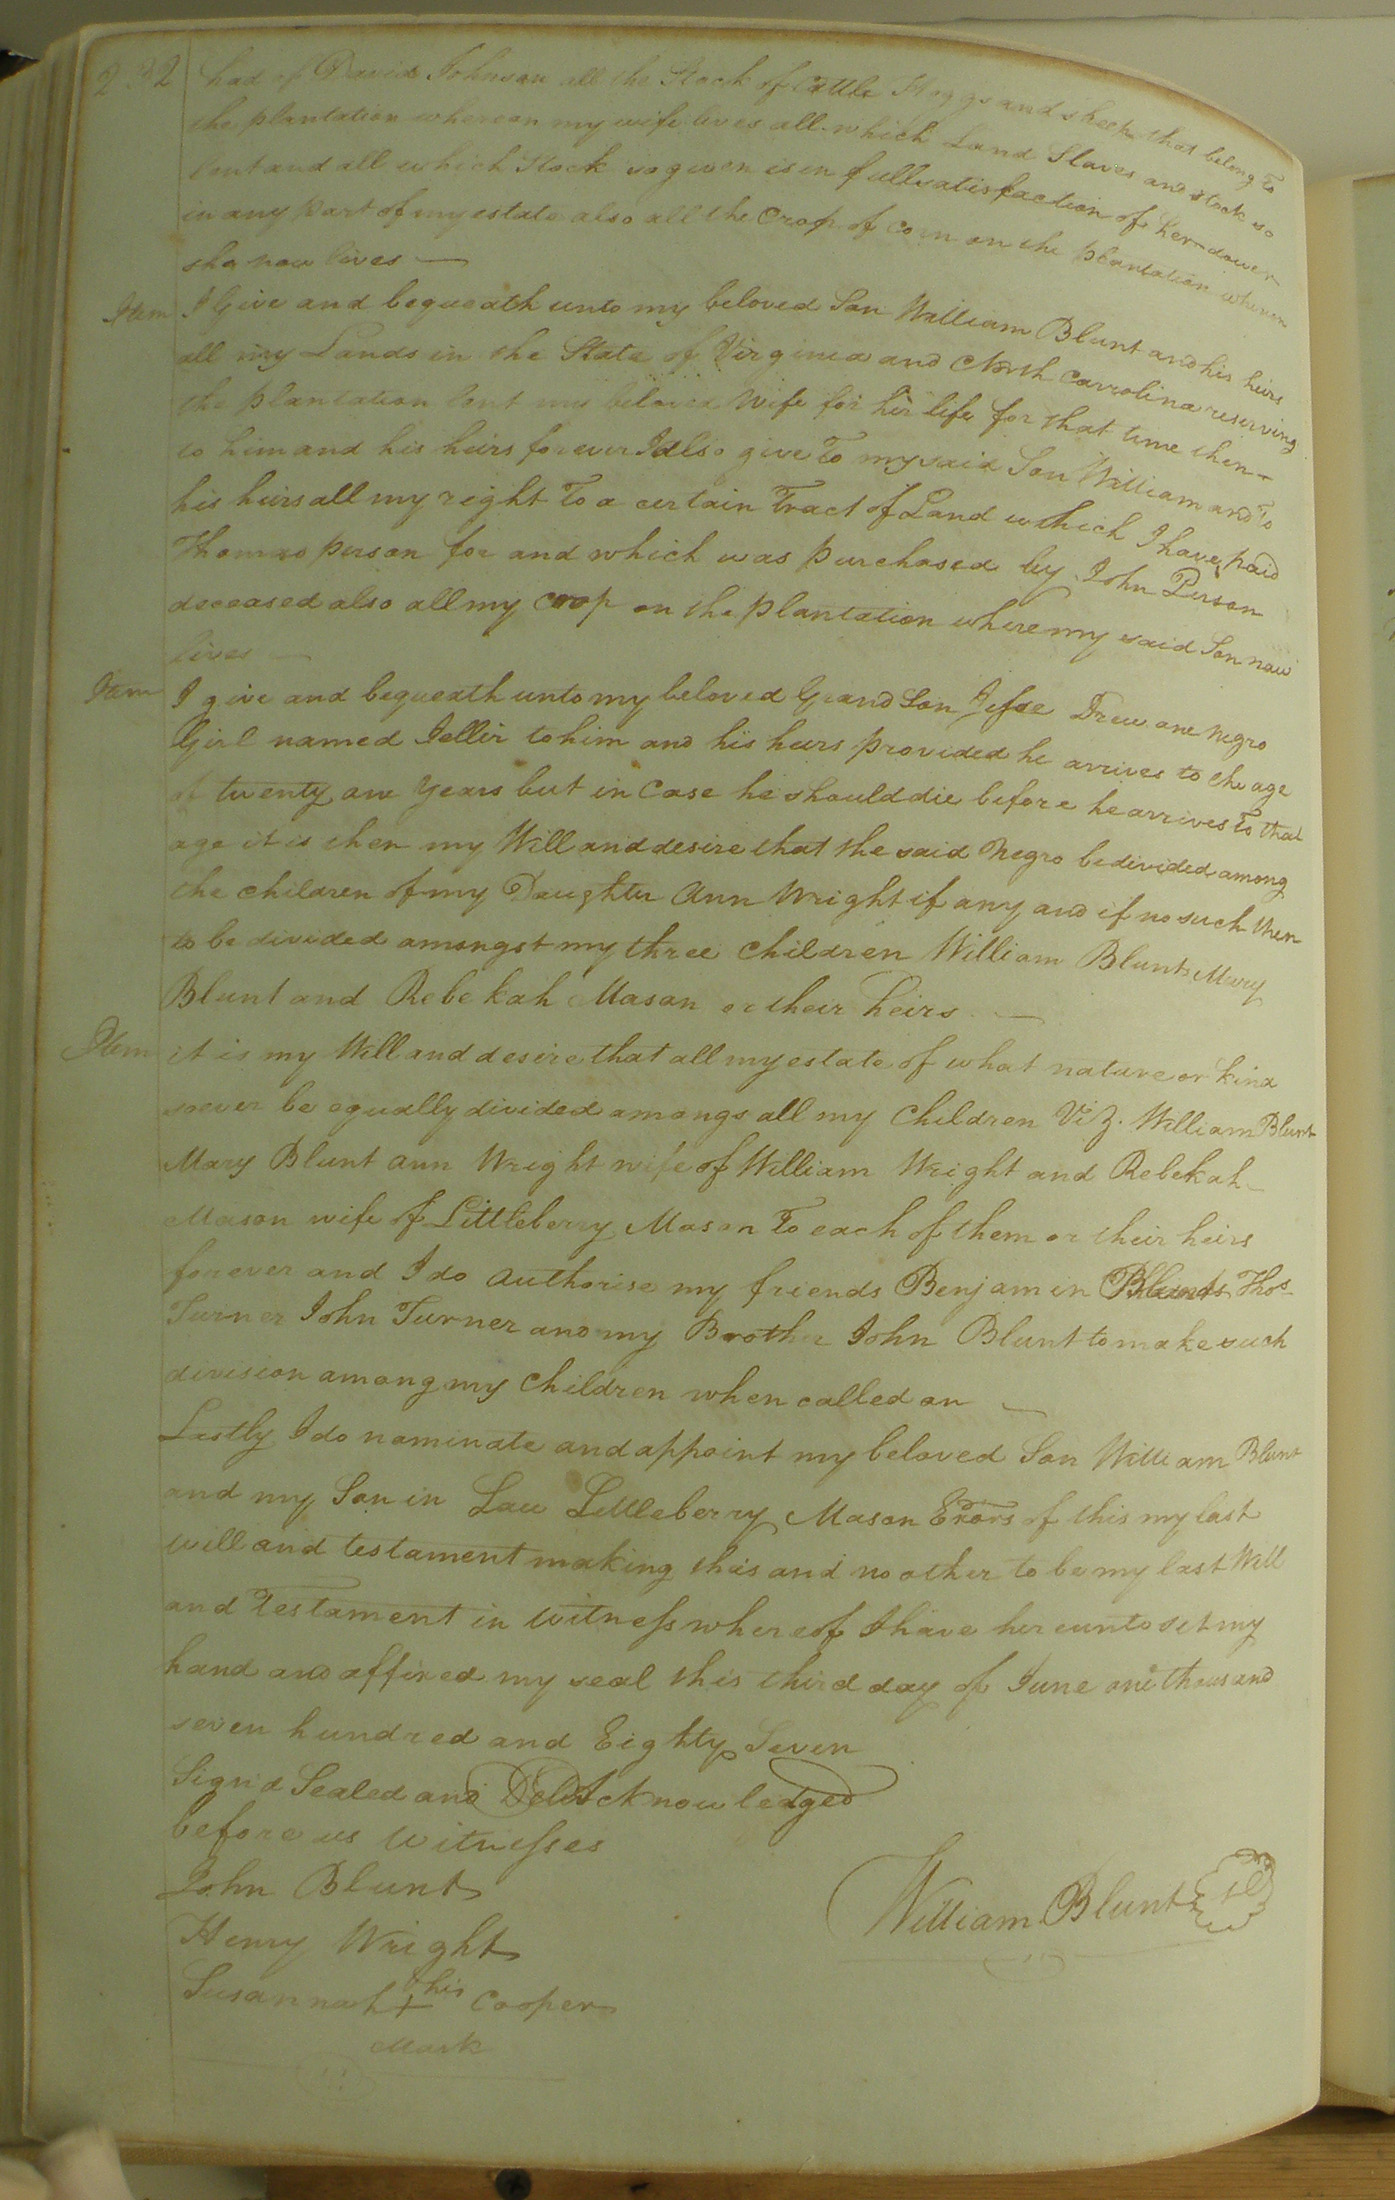 2 2 had of David Johnson all the Stock of Cattle Hoggs and sheep that belong to
the plantation whereon my wife lives all which Land Slaves and stock so
lent and all which Stock so given is in full satisfaction of her dower
in any part of my estate also all the Crop of corn on the plantation whereon
she now lives —
Item I Give and bequeath unto my beloved Son William Blunt and his heirs
all my Lands in the State of Virginia and North Carrolina reserving
the plantation lent my beloved Wife for her life for that time then —
to him and his heirs forever I also give To my said Son William and To
his heirs all my right To a certain Tract of Land which I have paid
Thomas person for and which was purchased by John Person
deceased also all my crop on the plantation where my said Son now
lives —
Item I give and bequeath unto my beloved Grand Son Jesse Drew one negro
Girl named Jellir to him and his heirs provided he arrives to the age
of twenty one Years but in Case he should die before he arrives To that
age it is then my Will and desire that the said Negro be divided among
the children of my Daughter Ann Wright if any and if no such then
to be divided amongst my three Children William Blunt Mary
Blunt and Rebekah Mason or their heirs —
Item it is my Will and desire that all my estate of what nature or kind
soever be equally divided amongs all my Children Viz. William Blunt
Mary Blunt ann Wright wife of William Wright and Rebekah
Mason wife of Littleberry Mason To each of them or their heirs
forever and I do Authorise my friends Benjamin Blunt Thos
Turner John Turner and my Brother John Blunt to make such
division among my Children when called on —
Lastly I do nominate and appoint my beloved Son William Blunt
and my Son in Law Littleberry Mason Exors of this my last
will and testament making this and no other to be my last Will
and Testament in Witness whereof I have hereunto set my
hand and affixed my seal this third day of June one thousand
seven hundred and Eighty Seven
Sign'd Sealed and Del Acknowledged
before us Witnesses
John Blunt
William Blunt
Henry Wright
Susannah + his Cooper
Mark